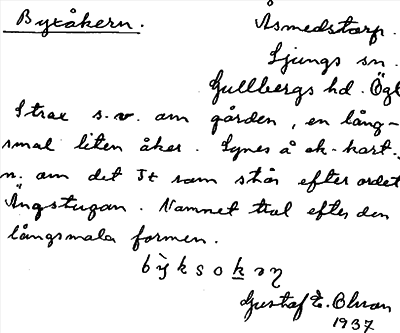 Byxåkern.
Åsmedstorp.
Ljungs sn.
Gullbergs hd. Ögl
Strax s.v. om gården, en lång-
smal liten åker. Synes å ek-kart.
n. om det St som står efter ordet
Ängstugan. Namnet trol efter den
långsmala formen.
bỳksokəṇ
Gustaf E.
1937